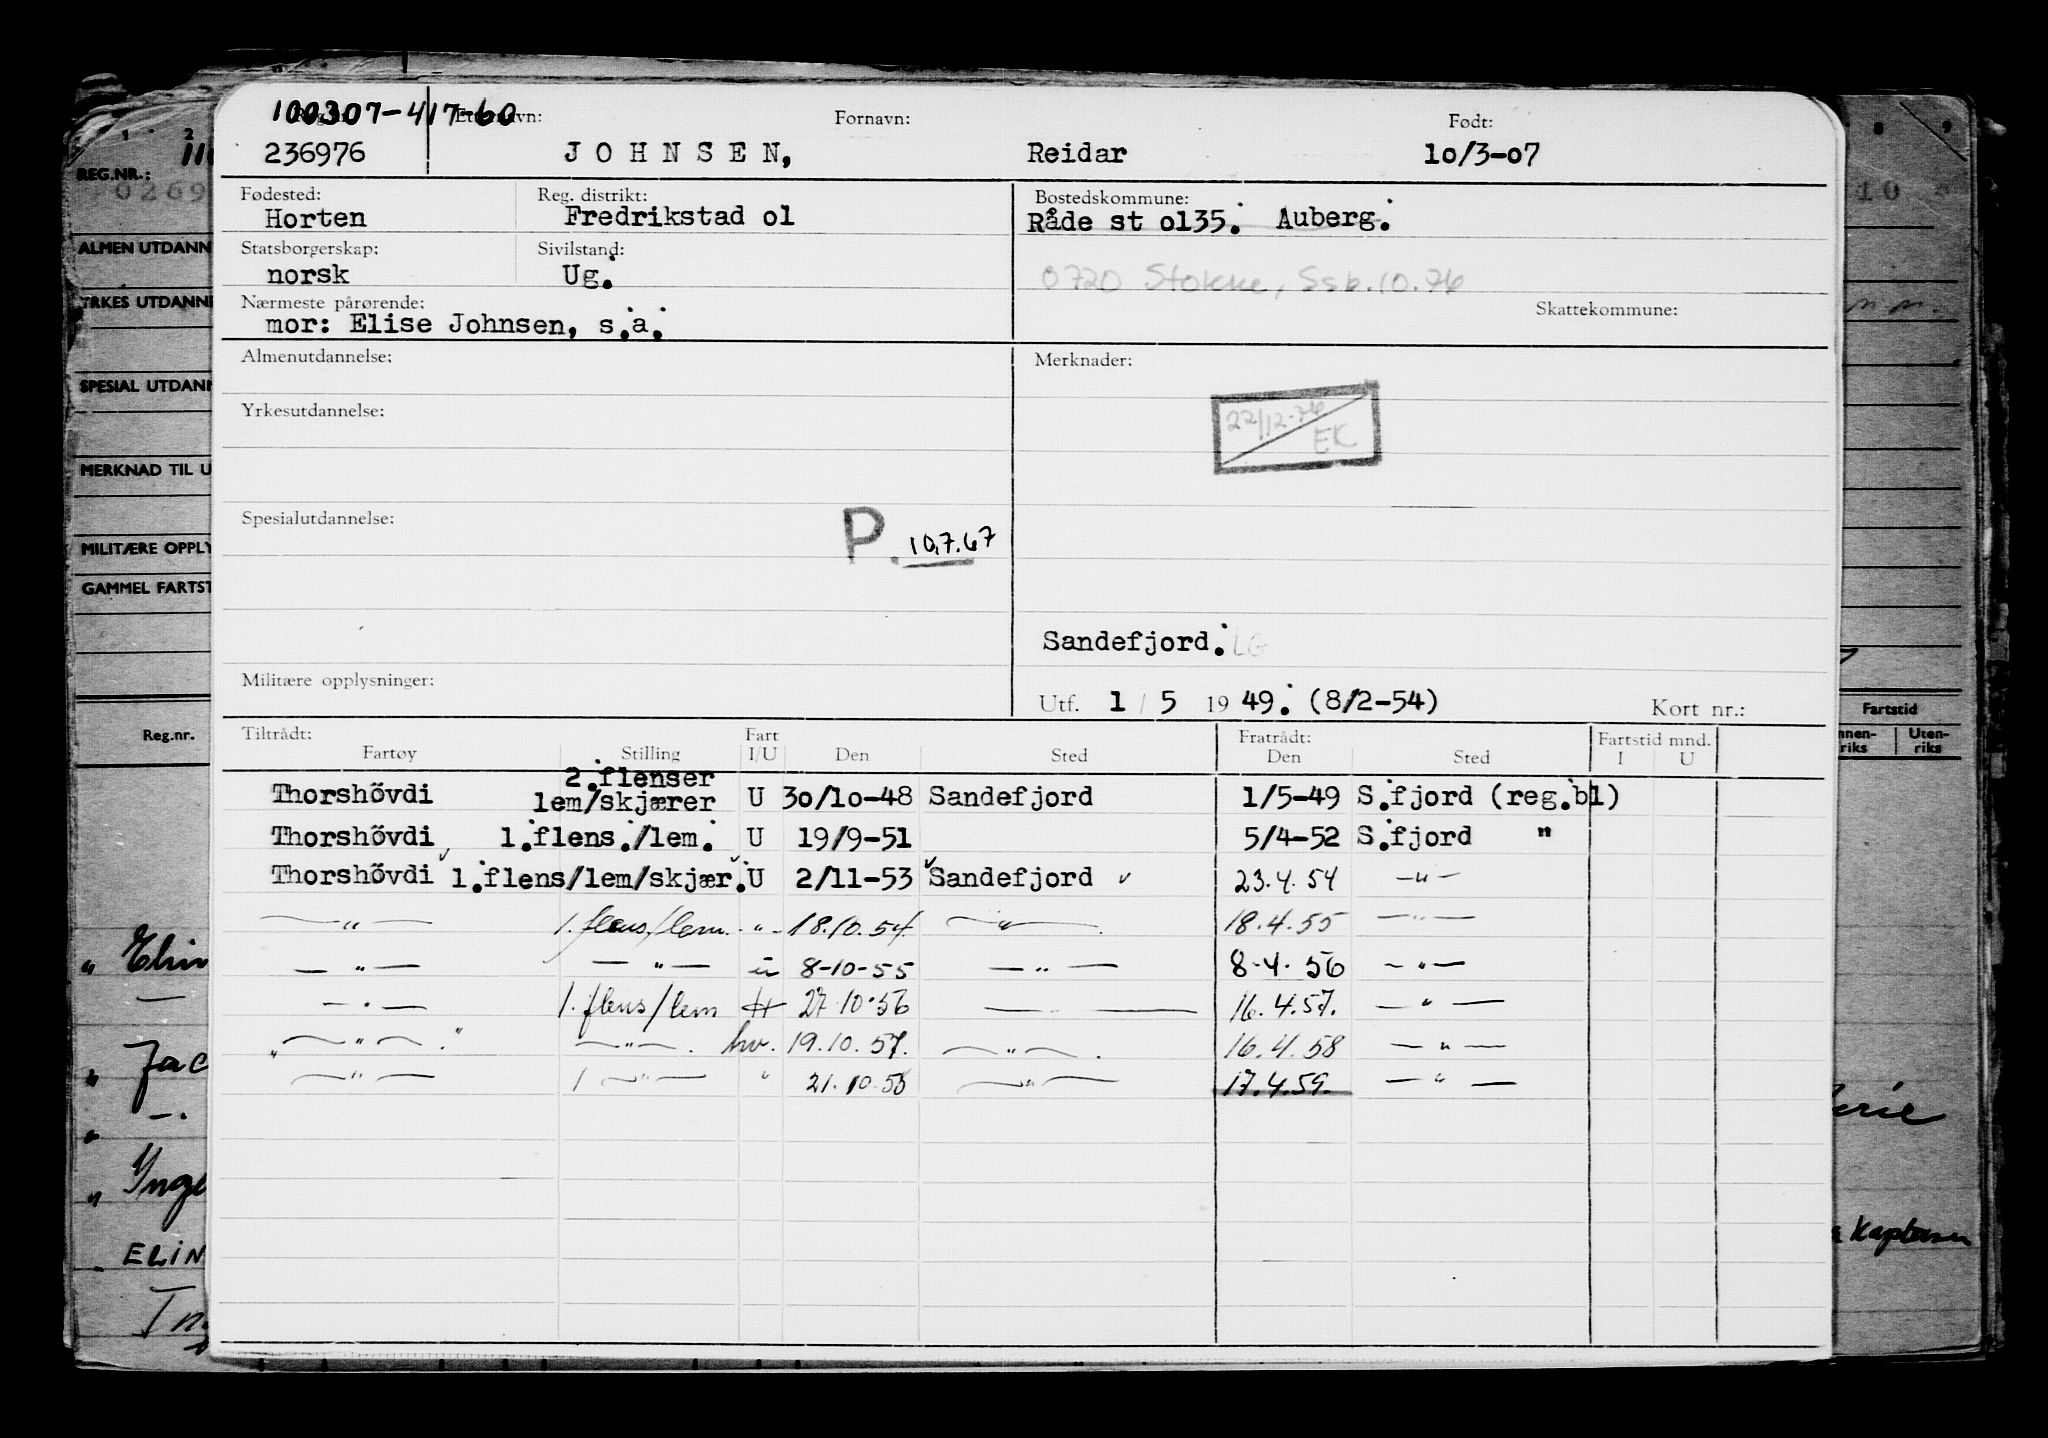 100307-417-60
Etternavn: Fornavn: Født:
236976 JOHNSEN, Reidar 10/3-07
Fødested: Reg. distrikt: Bostedskommune:
Horten Fredrikstad 01 Råde st 0135. Auberg.
Statsborgerskap: Sivilstand:
norsk Ug. 0720 Stokke, Ssb.10.76
Nærmeste pårørende: Skattekommune:
mor: Elise Johnsen, s.a.
Almenutdannelse: Merknader:
22/12-76 EK
Yrkesutdannelse:
Spesialutdannelse:
P. 10.7.67
Sandefjord. LG
Militære opplysninger:
Utf. 1 / 5 19 49. (8/2-54) Kort nr.:
Tiltrådt: Fart Fratrådt: Fartstid mnd.
Fartøy Stilling I/U Den Sted Den Sted I U
2.flenser
Thorshövdi lem/skjærer U 30/10-48 Sandefjord 1/5-49 S.fjord (reg.bl)
Thorshövdi 1.flens./lem. U 19/9-51 5/4-52 S.fjord "
Thorshövdi 1.flens/lem/skjær. U 2/11-53 Sandefjord 23.4.54 —"—
—"— 1. flens/lem. -"- 18.10.54 —"— 18.4.55 —"—
—"— —"— " 8-10-55 —"— 8.4.56 —"—
—"— 1. flens/lem H 27.10.56 — — 16.4.57. —"—
—"— —"— hv. 19.10.57. —"— 16.4.58 —"—
—"— 1 —"— " 21.10.58 —"— 17.4.59. —"—
1 2
REG.NR.:
0269
ALMEN UTDANN
YRKES UTDANNE
SPESIAL UTDANN
MERKNAD TIL U
MILITÆRE OPPLY
GAMMEL FARTST
Reg.nr.
" Elin
" Jac
" Inge
ELIN
8 9
10
Fartstid
nnen- Uten-
riks riks
Kaptein